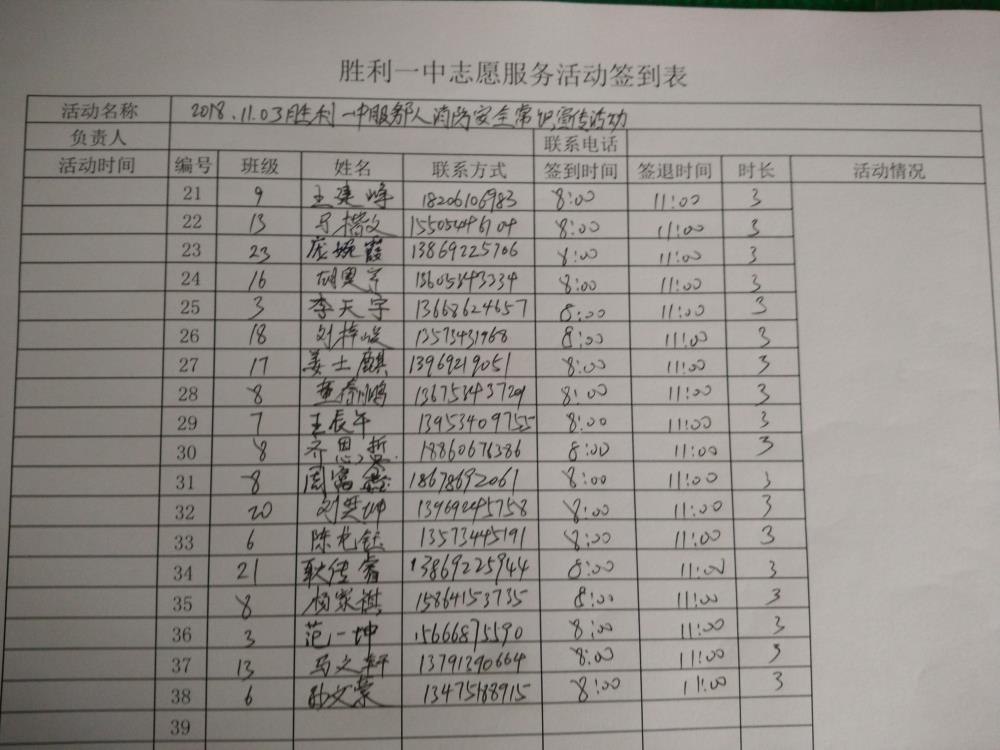 胜利一中志愿服务活动签到表
活动名称 2018.11.03胜利一中服务队消防安全常识宣传活动
负责人 联系电话
活动时间 编号 班级 姓名 联系方式 签到时间 签退时间 时长 活动情况
21 9 王建峰 18206106983 8:00 11:00 3
22 13 马楷文 8:00 11:00 3
23 23 庞婉霞 13869225706 8:00 11:00 3
24 16 13605343234 8:00 11:00 3
25 3 李天宇 13668624657 8:00 11:00 3
26 18 13573431968 8:00 11:00 3
27 17 姜士麒 13969219051 8:00 11:00 3
28 8 8:00 11:00 3
29 7 王辰午 13953409755 8:00 11:00 3
30 8 齐思哲 18860676386 8:00 11:00 3
31 8 周富鑫 18678692061 8:00 11:00 3
32 20 13969245758 8:00 11:00 3
33 6 13573445191 8:00 11:00 3
34 21 耿传睿 13869225944 8:00 11:00 3
35 8 杨家祺 15864153735 8:00 11:00 3
36 3 范一坤 15666875590 8:00 11:00 3
37 13 马文轩 13791390664 8:00 11:00 3
38 6 孙文荣 13475188915 8:00 11:00 3
39